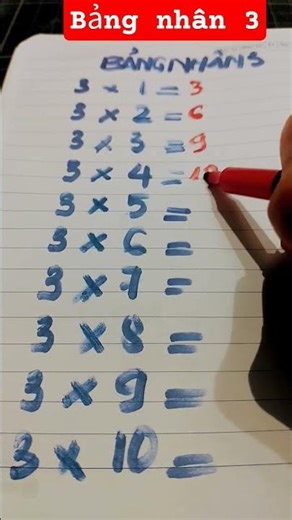 Bảng nhân 3
BẢNG NHÂN 3
3 × 1 = 3
3 × 2 = 6
3 × 3 = 9
3 × 4 =
3 × 5 =
3 × 6 =
3 × 7 =
3 × 8 =
3 × 9 =
3 × 10 =